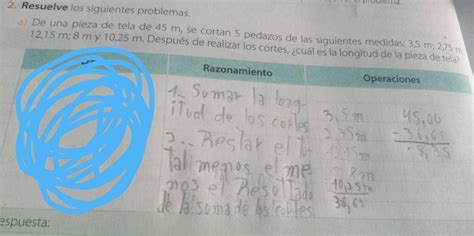 2. Resuelve los siguientes problemas.
a) De una pieza de tela de 45 m, se cortan 5 pedazos de las siguientes medidas: 3,5 m; 2,75 m
12,15 m; 8 m y 10,25 m. Después de realizar los cortes, ¿cuál es la longitud de la pieza de tela?
Razonamiento
Operaciones
1.- Sumar la long
itud de los cortes
2.- Restar el to
tal menos el me
nos el Resultado
de la suma de los cortes
3,5m
8m
10,25m
45,00
espuesta: